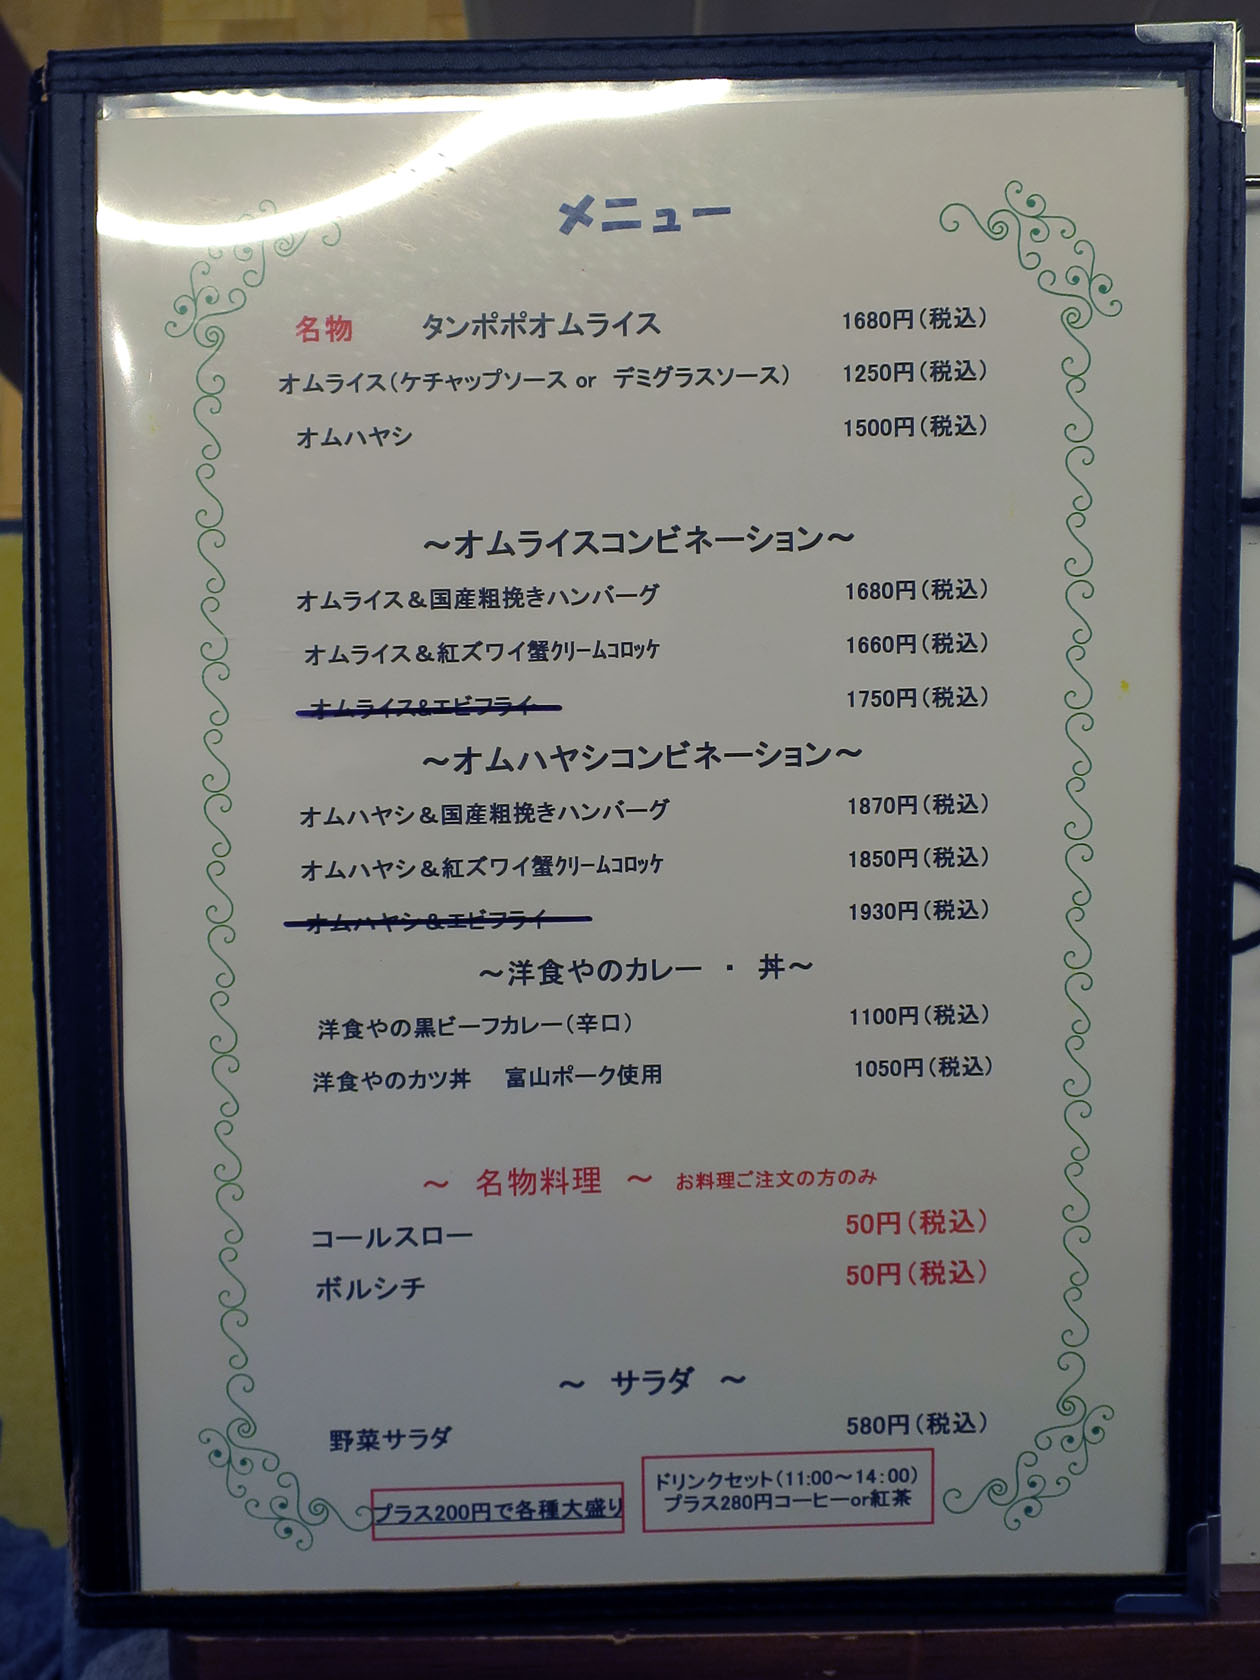 メニュー
名物 タンポポオムライス 1680円(税込)
オムライス(ケチャップソース or デミグラスソース) 1250円(税込)
オムハヤシ 1500円(税込)
～オムライスコンビネーション～
オムライス&国産粗挽きハンバーグ 1680円(税込)
オムライス&紅ズワイ蟹クリームコロッケ 1660円(税込)
オムライス&エビフライ 1750円(税込)
～オムハヤシコンビネーション～
オムハヤシ&国産粗挽きハンバーグ 1870円(税込)
オムハヤシ&紅ズワイ蟹クリームコロッケ 1850円(税込)
オムハヤシ&エビフライ 1930円(税込)
～洋食やのカレー ・ 丼～
洋食やの黒ビーフカレー(辛口) 1100円(税込)
洋食やのカツ丼 富山ポーク使用 1050円(税込)
～ 名物料理 ～ お料理ご注文の方のみ
コールスロー 50円(税込)
ボルシチ 50円(税込)
～ サラダ ～
野菜サラダ 580円(税込)
プラス200円で各種大盛り
ドリンクセット(11:00～14:00)
プラス280円コーヒーor紅茶